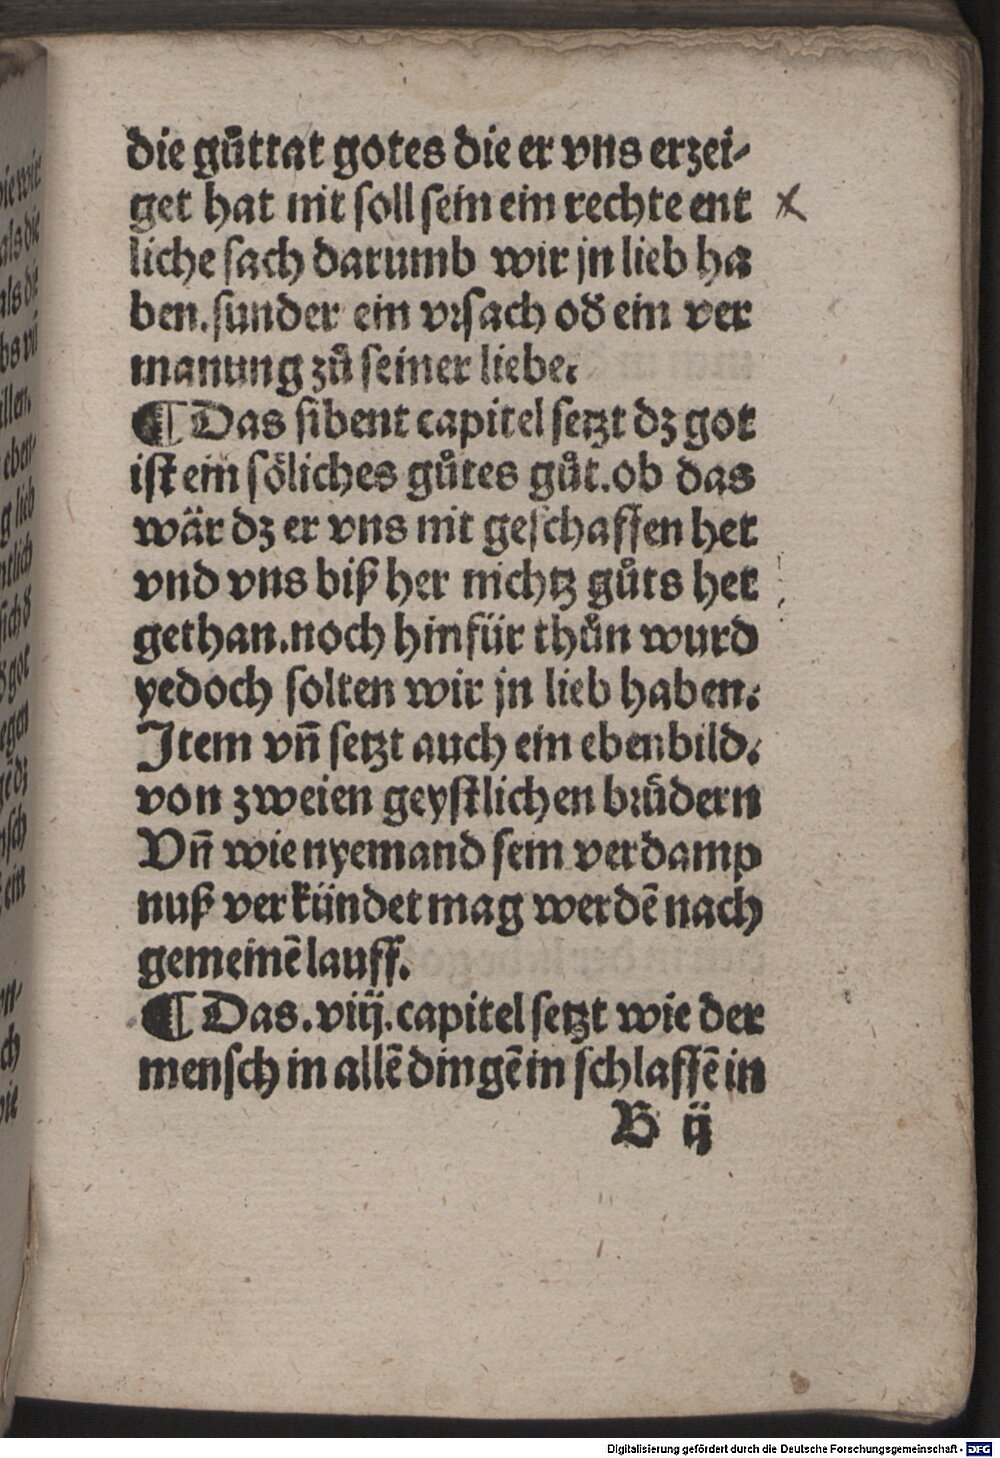 die gůttat gotes die er vns erzei-
get hat nit soll sein ein rechte ent
liche sach darumb wir jn lieb ha
ben. sunder ein vꝛsach oď ein ver
manung zů seiner liebe.
¶ Das sibent capitel setzt dz got
ist ein söliches gůtes gůt. ob das
wär dz er vns nit geschaffen het
vnd vns biß her nichtz gůts het
gethan. noch hinfür thůn wurd
yedoch solten wir jn lieb haben.
Item vñ setzt auch ein ebenbild.
von zweien geystlichen bꝛůdern
Vñ wie nyemand sein verdamp
nuß verkündet mag werdē nach
gemeinē lauff.
¶ Das. viij. capitel setzt wie der
mensch in allē dingē in schlaffē in
B ij
Digitalisierung gefördert durch die Deutsche Forschungsgemeinschaft - DFG